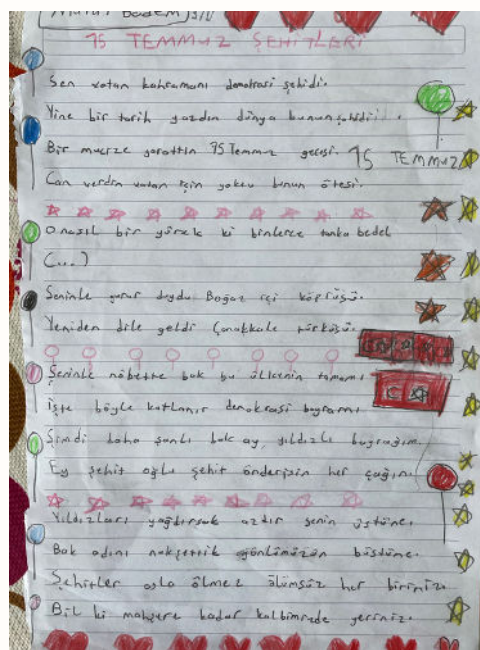 15 TEMMUZ ŞEHİTLERİ
Sen vatan kahramanı demokrasi şehidi.
Yine bir tarih yazdın dünya bunun şahidi.
Bir mucize yarattın 15 Temmuz gecesi.
15 TEMMUZ
Can verdin vatan için yoktu bunun ötesi.
O nasıl bir yürek ki binlerce tanka bedel
(...)
Seninle gurur duydu Boğaz içi köprüsü.
Yeniden dile geldi Çanakkale türküsü.
Seninle nöbette bak bu ülkenin tamamı
İşte böyle kutlanır demokrasi bayramı
Şimdi daha şanlı bak ay, yıldızlı bayrağım.
Ey şehit oğlu şehit önderisin her çağın.
Yıldızları yağdırsak azdır senin üstüne.
Bak adını nakşettik gönlümüzün büstüne.
Şehitler asla ölmez ölümsüz her biriniz.
Bil ki mahşere kadar kalbimizde yeriniz.